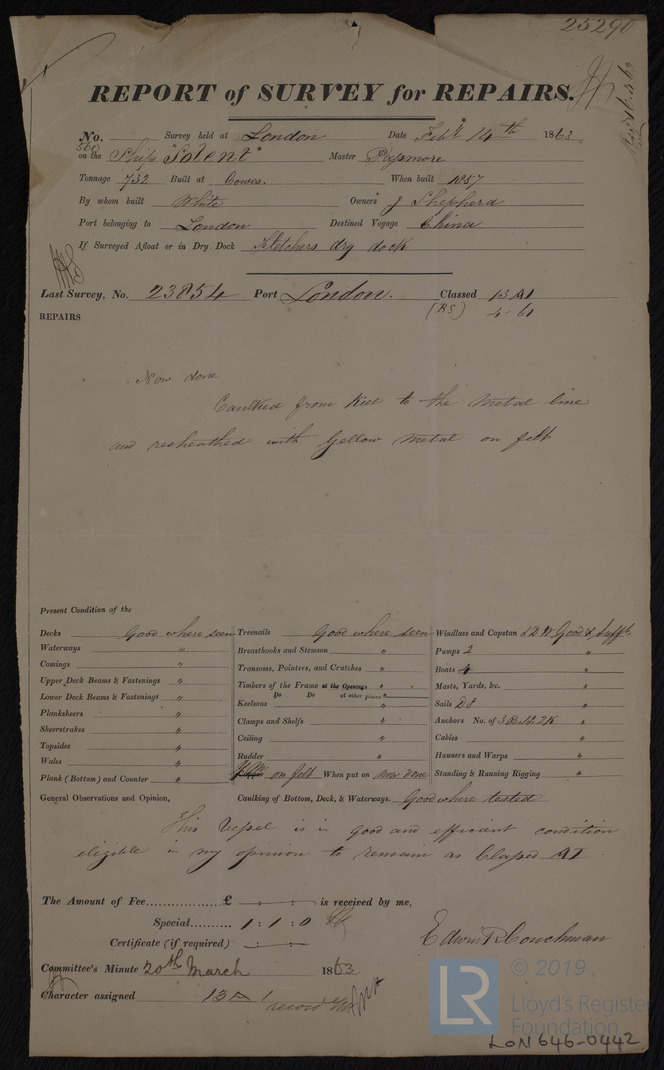 25290
REPORT of SURVEY for REPAIRS.
No. Survey held at London Date Feby 14th 1863
on the Ship "Solent" Master
Tonnage 732 Built at Cowes. When built 1857
By whom built White Owners J Shepherd
Port belonging to London Destined Voyage China
If Surveyed Afloat or in Dry Dock Fletchers dry dock
Last Survey, No. 23854 Port London. Classed 13 A1
(BS) 4-61
REPAIRS
Now done
Caulked from Keel to the metal line
and resheathed with Yellow Metal on felt
Present Condition of the
Decks Good where seen
Waterways "
Comings "
Upper Deck Beams & Fastenings "
Lower Deck Beams & Fastenings "
Planksheers "
Sheerstrakes "
Topsides "
Wales "
Plank (Bottom) and Counter "
Treenails Good where seen
Breasthooks and Stemson "
Transoms, Pointers, and Crutches "
Timbers of the Frame at the Openings "
Do Do at other places "
Keelsons "
Clamps and Shelfs "
Ceiling "
Rudder "
on felt When put on now done
Windlass and Capstan Good &
Pumps 2 "
Boats 4 "
Masts, Yards, &c. "
Sails "
Anchors No. of 3 B 1 St. 2 K "
Cables "
Hausers and Warps "
Standing & Running Rigging "
General Observations and Opinion, Caulking of Bottom, Deck, & Waterways. Good where tested
This Vessel is in good and efficient condition
eligible in my opinion to remain as Classed A1
The Amount of Fee................ £ : : is received by me,
Special......... 1 : 1 : 0
Certificate (if required) : :
Edwin R Couchman
Committee's Minute 20th March 1863
Character assigned 13 A 1
record
LR
© 2019
Lloyd's Register
Foundation
LON646-0442